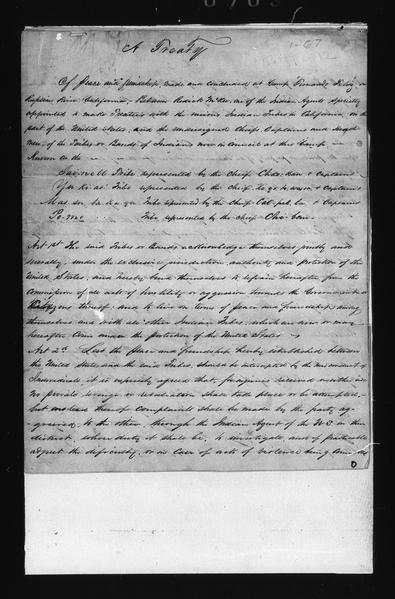 A Treaty
Of Peace and friendship, made and concluded at Camp Fernando Feliz, on
Russian River California, Between Redick McKee, one of the Indian Agents specially
appointed to make Treaties with the various Indian Tribes in California, on the
part of the United States, and the undersigned Chiefs Captains and head
men, of the Tribes or Bands of Indians now in council at this Camp,
Known as the
Sai-nell Tribe represented by the Chief Chas-kan & Captains
Yu-ki-as Tribe represented by the Chief
Mas-su-ta-ka-ya Tribe represented by the Chief Cal-pal-lau & Captains
Po-mo Tribe represented by the chief Chi-bem
Art 1st The said Tribes or Bands acknowledge themselves jointly and
severally, under the exclusive jurisdiction authority and protection of the
United States, and hereby bind themselves to refrain hereafter from the
Commission of all acts of hostility or aggression towards the Government or
Citizens thereof, and to live on terms of peace and friendship among
themselves and with all other Indian Tribes, which are now or may
hereafter come under the protection of the United States
Art 2d Lest the Peace and Friendship hereby established between
the United States and the said Tribes, should be interrupted by the misconduct of
Individuals, it is expressly agreed that, for injuries received on either side
No private revenge or retaliation shall take place or be attempted
but instead thereof Complaints shall be made by the party ag-
grieved, to the other, through the Indian Agent of the U.S. in their
district, whose duty it shall be, to investigate and if practicable
adjust the difficulty, or in Case of acts of violence being Com-